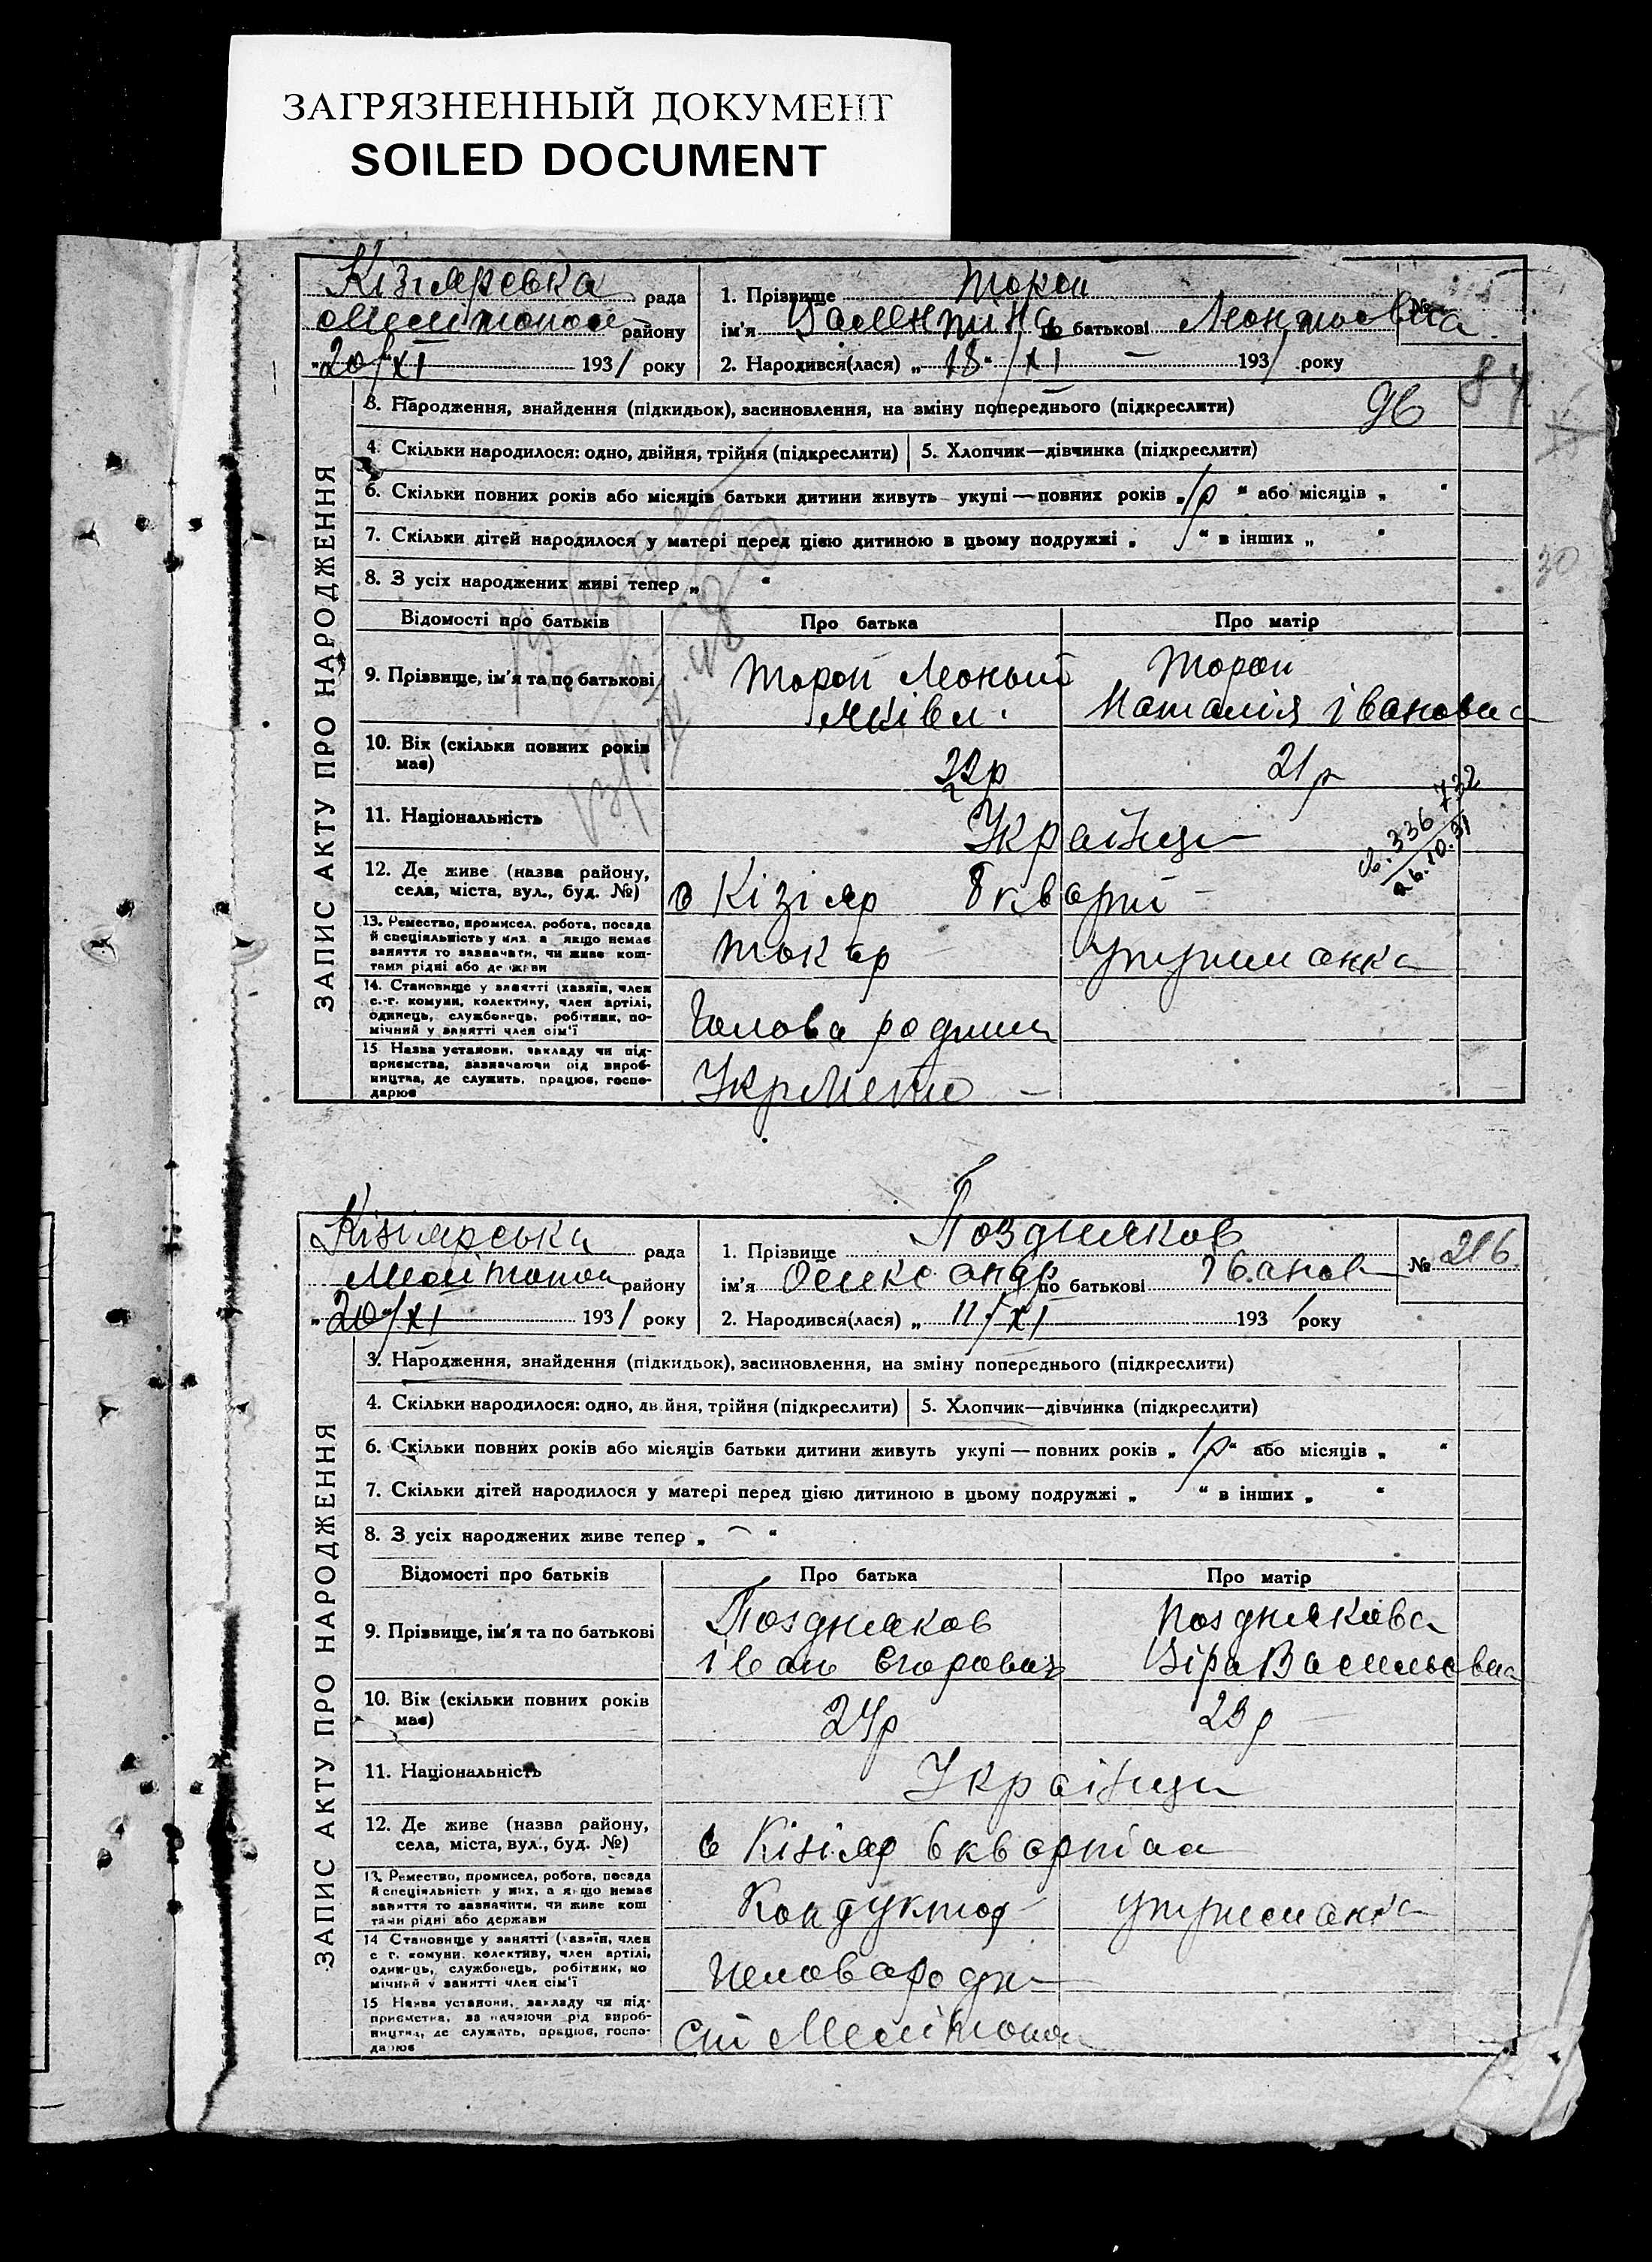 ЗАГРЯЗНЕННЫЙ ДОКУМЕНТ
SOILED DOCUMENT
Кізіярська рада
Мелітополь району
„20/XI 1931 року
1. Прізвище Торон
ім'я Валентина по батькові Леонтьевна
2. Народився(лася) „18“/XI — 1931 року
№
84
ЗАПИС АКТУ ПРО НАРОДЖЕННЯ
3. Народження, знайдення (підкидьок), засиновлення, на зміну попереднього (підкреслити)
96
4. Скільки народилося: одно, двійня, трійня (підкреслити)
5. Хлопчик—дівчинка (підкреслити)
6. Скільки повних років або місяців батьки дитини живуть укупі — повних років „1р“ або місяців „ “
7. Скільки дітей народилося у матері перед цією дитиною в цьому подружжі „ “ в інших „ “
30
8. З усіх народжених живі тепер „ “
Відомості про батьків Про батька Про матір
9. Прізвище, ім'я та по батькові
Торон Леонтій
Яківл.
Торон
Наталія Івановна
10. Вік (скільки повних років має)
22р 21р
11. Національність
Українці
12. Де живе (назва району, села, міста, вул., буд. №)
с Кізіяр 8 кварт —
13. Ремество, промисел, робота, посада й спеціяльність у них, а якщо немає заняття то зазначати, чи живе коштами рідні або держави
Токар утриманка
14. Становище у занятті (хазяїн, член с.-г. комуни, колективу, член артілі, одинець, службовець, робітник, помічний у занятті член сім'ї
Голова родини
15. Назва установи, закладу чи підприємства, зазначаючи рід виробництва, де служить, працює, господарює
Кізіярська рада
Мелітополь району
„20/XI 1931 року
1. Прізвище Поздняков
ім'я Олександр по батькові Іванов
2. Народився(лася) „11“/XI 1931 року
№ 216
ЗАПИС АКТУ ПРО НАРОДЖЕННЯ
3. Народження, знайдення (підкидьок), засиновлення, на зміну попереднього (підкреслити)
4. Скільки народилося: одно, двійня, трійня (підкреслити)
5. Хлопчик—дівчинка (підкреслити)
6. Скільки повних років або місяців батьки дитини живуть укупі — повних років „1р“ або місяців „ “
7. Скільки дітей народилося у матері перед цією дитиною в цьому подружжі „ “ в інших „ “
8. З усіх народжених живе тепер „ — “
Відомості про батьків Про батька Про матір
9. Прізвище, ім'я та по батькові
Поздняков
Іван Єгорович
Познякова
Віра Васильевна
10. Вік (скільки повних років має)
24р 23р
11. Національність
Українці
12. Де живе (назва району, села, міста, вул., буд. №)
с Кізіяр 6 квартал
13. Ремество, промисел, робота, посада й спеціяльність у них, а якщо немає заняття то зазначити, чи живе коштами рідні або держави
Кондуктор утриманка
14 Становище у занятті (хазяїн, член с г. комуни, колективу, член артілі, одинець, службовець, робітник, помічний у занятті член сім'ї
Голова роди
15 Назва установи, закладу чи підприємства, зазначаючи рід виробництва, де служить, працює, господарює
Ст Мелітополь